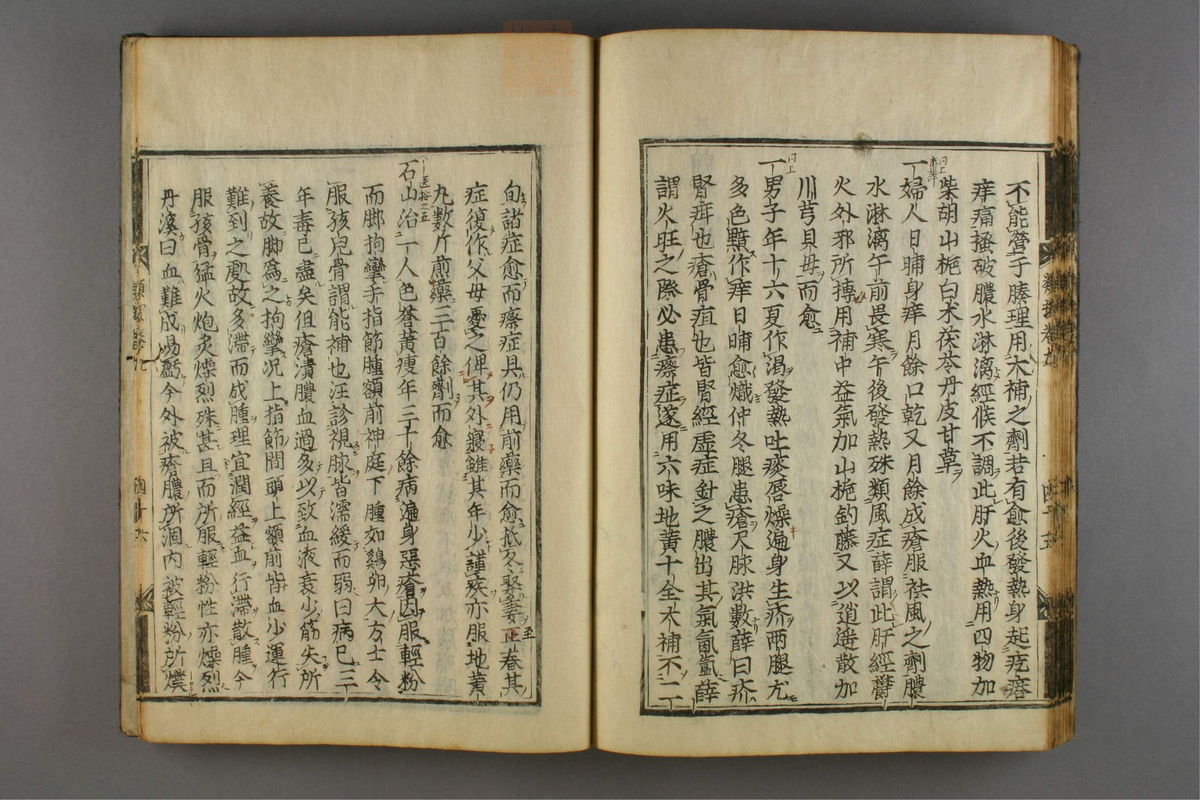 不能營于腠理用大補之劑若有愈後發熱身起疙瘩
痒痛搔破膿水淋漓經候不調此肝火血熱用四物加
柴胡山梔白朮茯苓丹皮甘草
同上
一婦人日晡身痒月餘口乾又月餘成瘡服祛風之劑膿
水淋漓午前畏寒午後發熱殊類風症薛謂此肝經鬱
火外邪所搏用補中益氣加山梔釣藤又以逍遙散加
川芎貝母而愈
同上
一男子年十六夏作渴發熱吐痰唇燥遍身生疥兩腿尤
多色黯作痒日晡愈熾仲冬腿患瘡尺脉洪數薛曰疥
腎疳也瘡骨疽也皆腎經虛症針之膿出其氣氤氳薛
謂火旺之際必患瘵症遂用六味地黃十全大補不二
旬諸症愈而瘵症具仍用前藥而愈抵冬娶妻至春其
症復作父母憂之俾其外寢雖其年少謹疾亦服地黃
丸數斤煎藥三百餘劑而愈
石山治一人色蒼黃瘦年三十餘病遍身惡瘡因服輕粉
而脚拘攣手指節腫額前神庭下腫如鷄卵大方士令
服孩兒骨謂能補也汪診視脉皆濡緩而弱曰病已三
年毒已盡矣但瘡潰膿血過多以致血液衰少筋失所
養故脚為之拘攣况上指節間頭上額前皆血少運行
難到之處故多滯而成腫理宜潤經益血行滯散腫今
服孩骨猛火炮炙燥烈殊甚且而所服輕粉性亦燥烈
丹溪曰血難成易虧今外被瘡膿所涸内被輕粉所燥